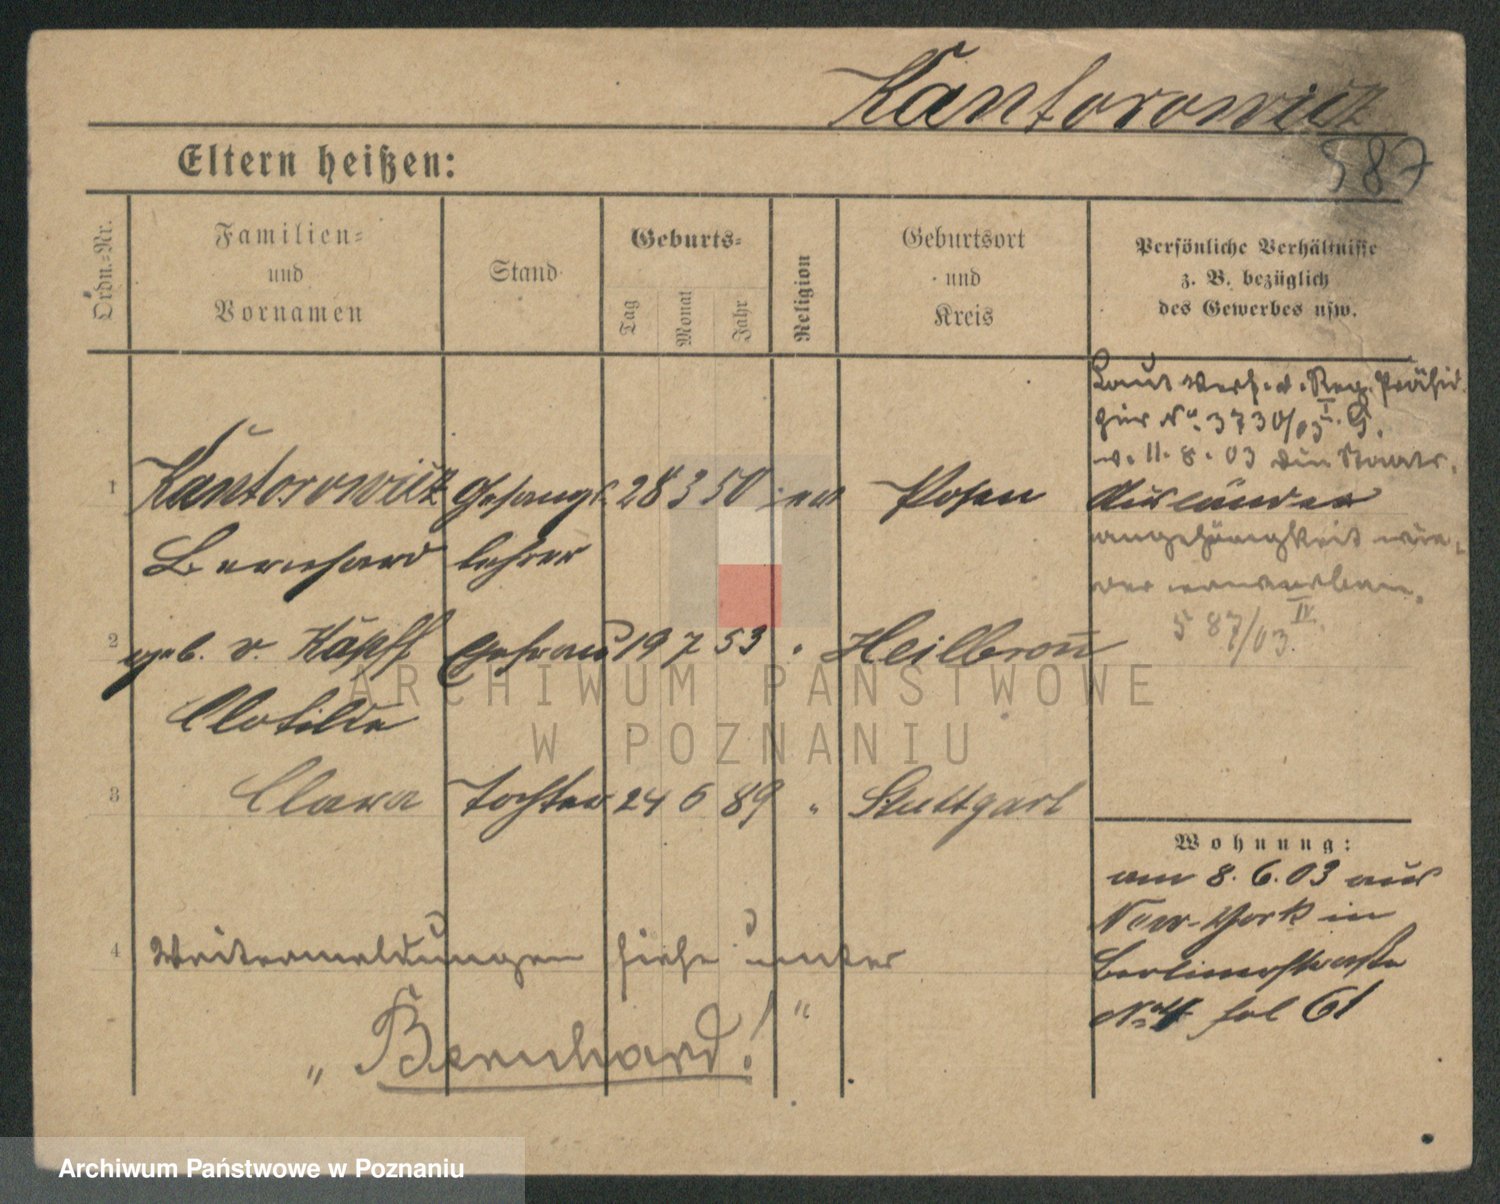 Kantorowicz
587
Eltern heißen:
Ordn.-Nr.
Familien-
und
Vornamen
Stand
Geburts-
Tag
Monat
Jahr
Religion
Geburtsort
und
Kreis
Persönliche Verhältnisse
z. B. bezüglich
des Gewerbes usw.
Laut Verf. d. Reg. Präsid.
hier No. 3730/03 I. G.
v. 11.8.03 die Staats-
Ausländer
angehörigkeit wie-
der erworben.
587/03 IV.
1 Kantorowicz Gesangs- 28 3 50 ev Posen
Bernhard lehrer
2 geb. v. Käpff Ehefrau 19 7 53 " Heilbronn
Clotilde
3 Clara Tochter 24 6 89 " Stuttgart
4 Weitermeldungen siehe unter
„Bernhard!"
Wohnung:
am 8.6.03 aus
New-York in
Berlinerstraße
No. 4 fol 61
ARCHIWUM PAŃSTWOWE
W POZNANIU
Archiwum Państwowe w Poznaniu